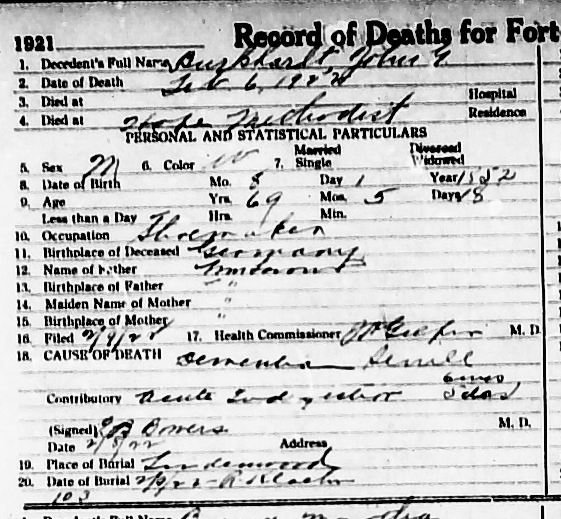 1921 Record of Deaths for Fort
1. Decedent's Full Name Burkhardt, John G
2. Date of Death Feb 6, 1922
3. Died at Hospital
4. Died at Hope Methodist Residence
PERSONAL AND STATISTICAL PARTICULARS
5. Sex M 6. Color W 7. Married Single Divorced Widowed
8. Date of Birth Mo. 8 Day 1 Year 1852
9. Age Yrs. 69 Mos. 5 Days 18
Less than a Day Hrs. Min.
10. Occupation Shoemaker
11. Birthplace of Deceased Germany
12. Name of Father Unknown
13. Birthplace of Father "
14. Maiden Name of Mother "
15. Birthplace of Mother "
16. Filed 2/9/22 17. Health Commissioner M. D.
18. CAUSE OF DEATH Dementia Senile
6 mos
Contributory Acute Indigestion 3 das
(Signed) Bowers M. D.
Date 2/8/22 Address
19. Place of Burial Lindenwood
20. Date of Burial 2/9/22 - Klaehn
103
Decedent's Full Name